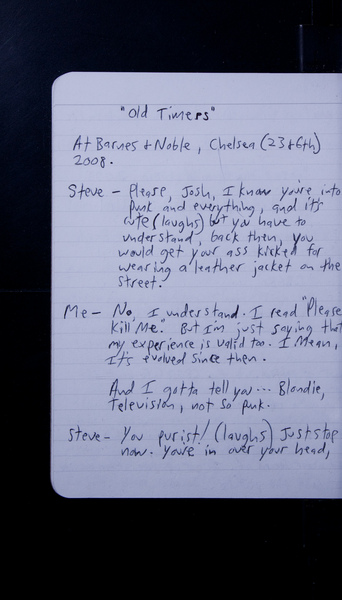 "Old Timers"
At Barnes & Noble, Chelsea (23 & 6th)
2008.
Steve - Please, Josh, I know you're into
punk and everything, and it's
cute (laughs) but you have to
understand, back then, you
would get your ass kicked for
wearing a leather jacket on the
street.
Me - No, I understand. I read "Please
Kill Me." But I'm just saying that
my experience is valid too. I mean,
it's evolved since then.
And I gotta tell you... Blondie,
Television, not so punk.
Steve - You purist! (laughs) Just stop
now. You're in over your head,